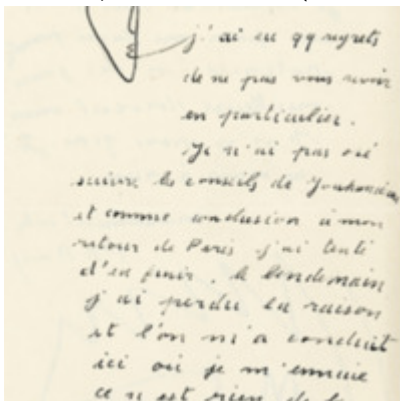 j'ai eu qq regrets
de ne pas vous revoir
en particulier.
Je n'ai pas osé
suivre les conseils de
et comme conclusion à mon
retour de Paris j'ai tenté
d'en finir. le lendemain
j'ai perdu la raison
et l'on m'a conduit
ici où je m'ennuie
ce n'est rien de